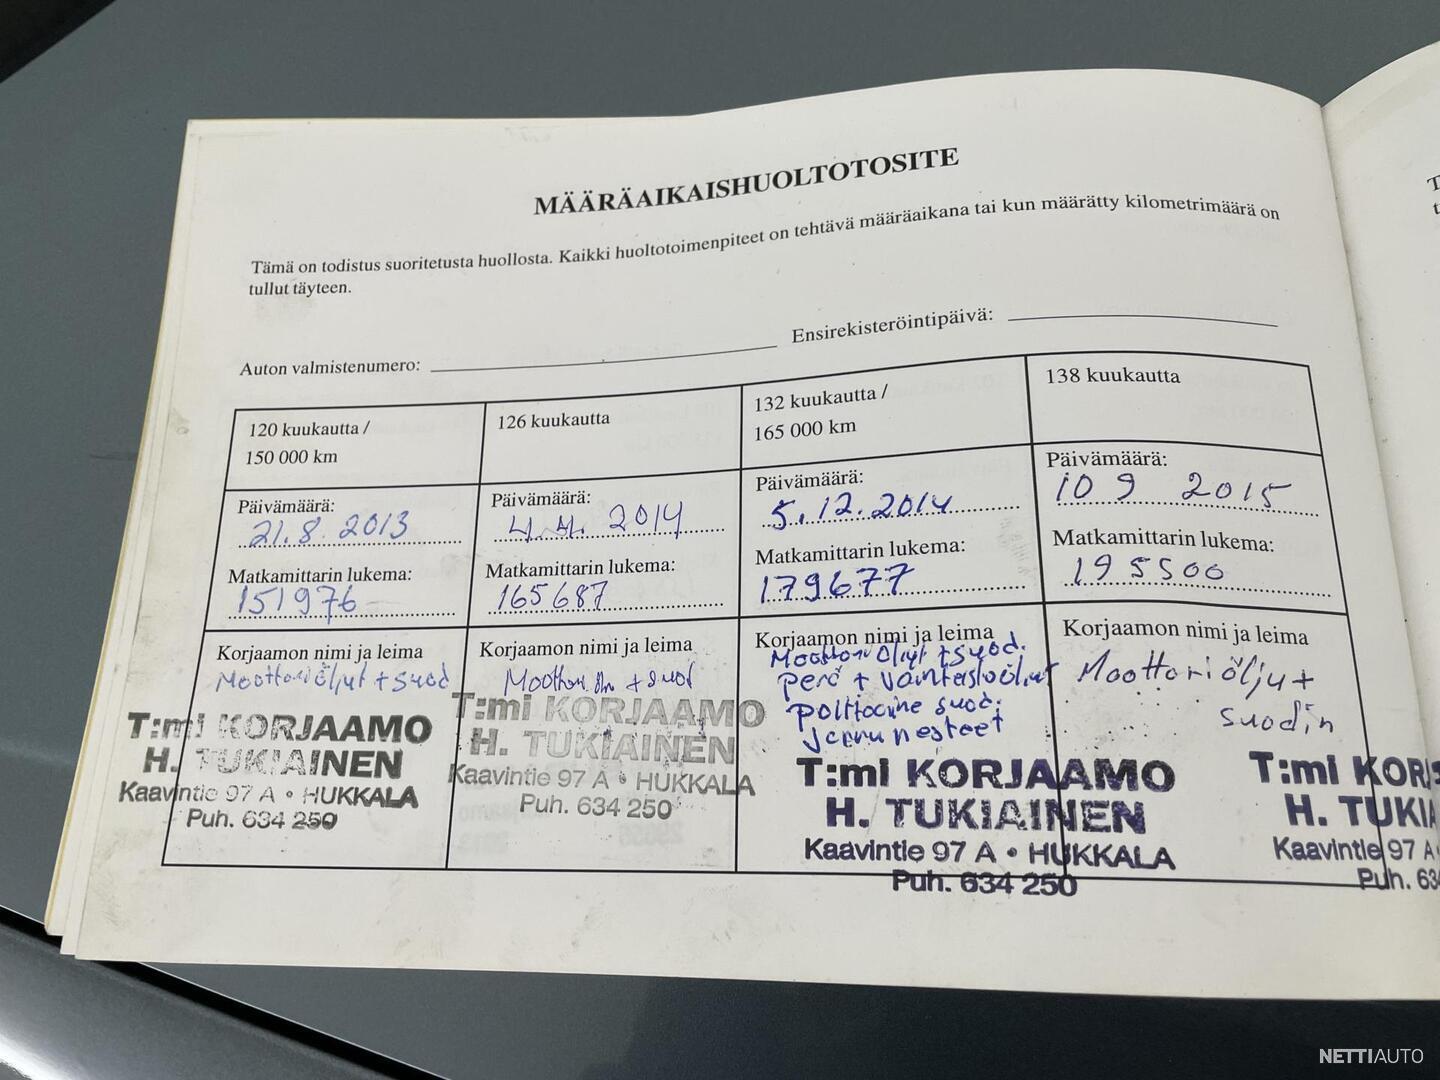 MÄÄRÄAIKAISHUOLTOTOSITE
Tämä on todistus suoritetusta huollosta. Kaikki huoltotoimenpiteet on tehtävä määräaikana tai kun määrätty kilometrimäärä on
tullut täyteen.
Auton valmistenumero:
Ensirekisteröintipäivä:
120 kuukautta /
150 000 km
Päivämäärä:
21.8.2013
Matkamittarin lukema:
151976
Korjaamon nimi ja leima
Moottoriöljyt + suod
T:mi KORJAAMO
H. TUKIAINEN
Kaavintie 97 A • HUKKALA
Puh. 634 250
126 kuukautta
Päivämäärä:
4.4. 2014
Matkamittarin lukema:
165687
Korjaamon nimi ja leima
+ suod
T:mi KORJAAMO
H. TUKIAINEN
Kaavintie 97 A • HUKKALA
Puh. 634 250
132 kuukautta /
165 000 km
Päivämäärä:
5.12.2014
Matkamittarin lukema:
179677
Korjaamon nimi ja leima
Moottoriöljyt + suod.
perä + vaihteistoöljyt
polttoaine suod.
Jarrunesteet
T:mi KORJAAMO
H. TUKIAINEN
Kaavintie 97 A • HUKKALA
Puh. 634 250
138 kuukautta
Päivämäärä:
10 9 2015
Matkamittarin lukema:
195500
Korjaamon nimi ja leima
Moottoriöljy +
suodin
T:mi KORJ
H. TUKIA
Kaavintie 97 A
Puh. 63
NETTIAUTO